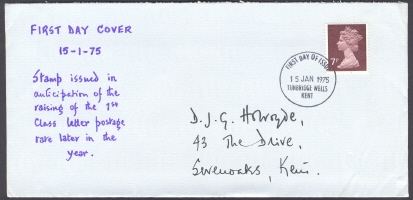 FIRST DAY COVER
15-1-75
Stamp issued in
anticipation of the
raising of the 1st
Class letter postage
rate later in the
year.
FIRST DAY OF ISSUE
15 JAN 1975
TUNBRIDGE WELLS
KENT
7P
D.J.G. Holroyde,
43 The Drive,
Sevenoaks, Kent.